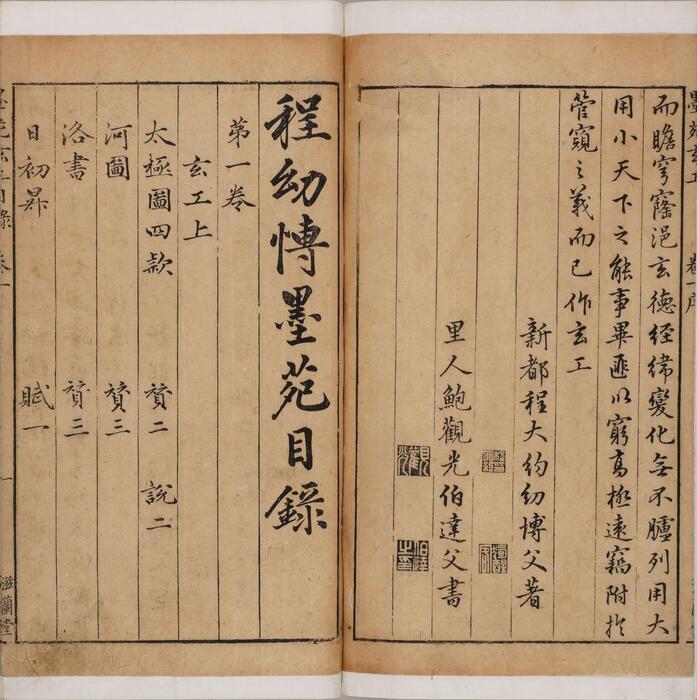 墨苑玄工 卷一序
而瞻穹窿浥玄德經緯變化無不臚列用大
用小天下之能事畢匪以窮高極遠竊附於
管窺之義而已作玄工
新都程大約幼博父著
里人鮑觀光伯達父書
程幼博墨苑目錄
第一卷
玄工上
太極圖四款 贊二 說二
河圖 贊三
洛書 贊三
日初昇 賦一
目錄 卷一 一 滋蘭堂